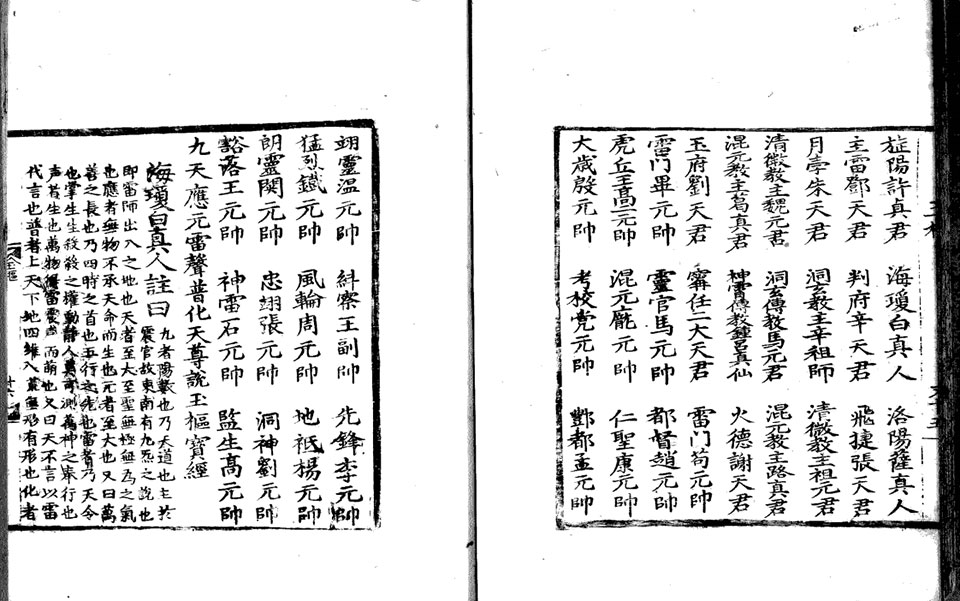 旌陽許真君 海瓊白真人 洛陽薩真人
主雷鄧天君 判府辛天君 飛捷張天君
月孛朱天君 洞玄教主辛祖師 清微教主祖元君
清微教主魏元君 洞玄傳教馬元君 混元教主路真君
混元教主葛真君 神霄傳教鍾呂真仙 火德謝天君
玉府劉天君 寗任二大天君 雷門苟元帥
雷門畢元帥 靈官馬元帥 都督趙元帥
虎丘王高二元帥 混元龐元帥 仁聖康元帥
大歲殷元帥 考校党元帥 酆都孟元帥
翊靈溫元帥 糾察王副帥 先鋒李元帥
猛烈鐵元帥 風輪周元帥 地祇楊元帥
朗靈関元帥 忠翊張元帥 洞神劉元帥
豁落王元帥 神雷石元帥 監生高元帥
九天應元雷聲普化天尊說玉樞寶經
海瓊白真人註曰 九者陽數也乃天道也主於
震宮故東南有九炁之說也
即雷師出入之地也天者至大至聖無極無為之氣
也應者無物不承天命而生也元者至大也又曰萬
善之長也乃四時之首也五行之先也雷者乃天令
也掌生生殺殺之權動静人莫可測萬神之奉行也
声若生也萬物得雷震声而萌也又曰天不言以雷
代言也普者上天下地四維八荒無形有形也化者